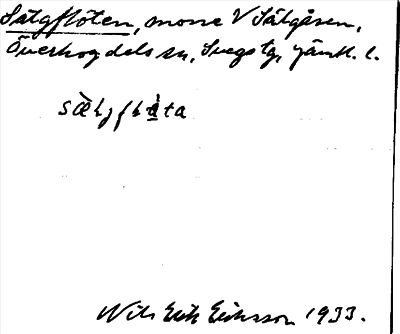 Sätgflöten, mosse V Sätgåsen,
Överhogdals sn, Svegs tg, Jämtl. l.
Nils Erik Eriksson 1933.